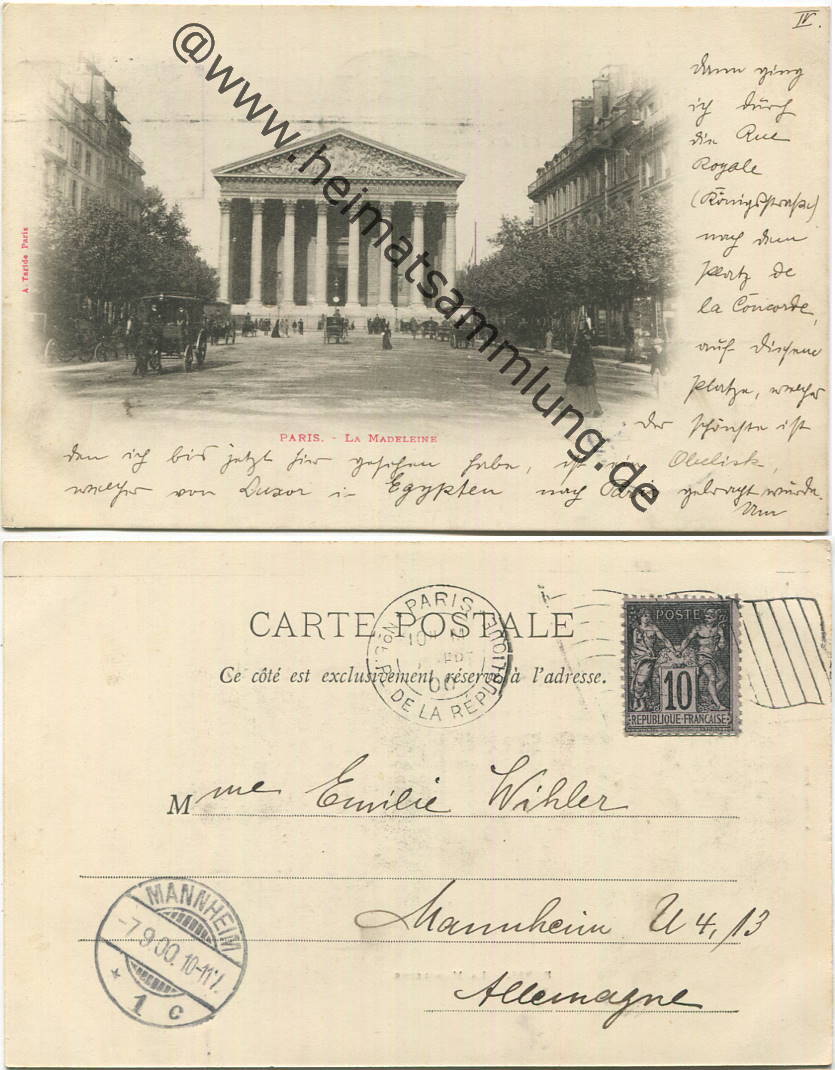 IV.
dann ging
ich durch
die Rue
Royale
(Königsstraße)
nach dem
Platz de
la Concorde,
auf diesem
Platze, welcher
der schönste ist
den ich bis jetzt hier gesehen habe, ist ein Obelisk,
welcher von Luxor in Egypten nach Paris gebracht wurde.
Um
A. Taride Paris
PARIS. - LA MADELEINE
@www.heimatsammlung.de
CARTE POSTALE
Ce côté est exclusivement réservé à l'adresse.
PARIS
R. DE LA RÉPUBLIQUE
00
POSTE
10
RÉPUBLIQUE-FRANÇAISE
Mme Emilie Wihler
Mannheim U 4, 13
Allemagne
MANNHEIM
-7.9.00.10-11V.
* 1 c